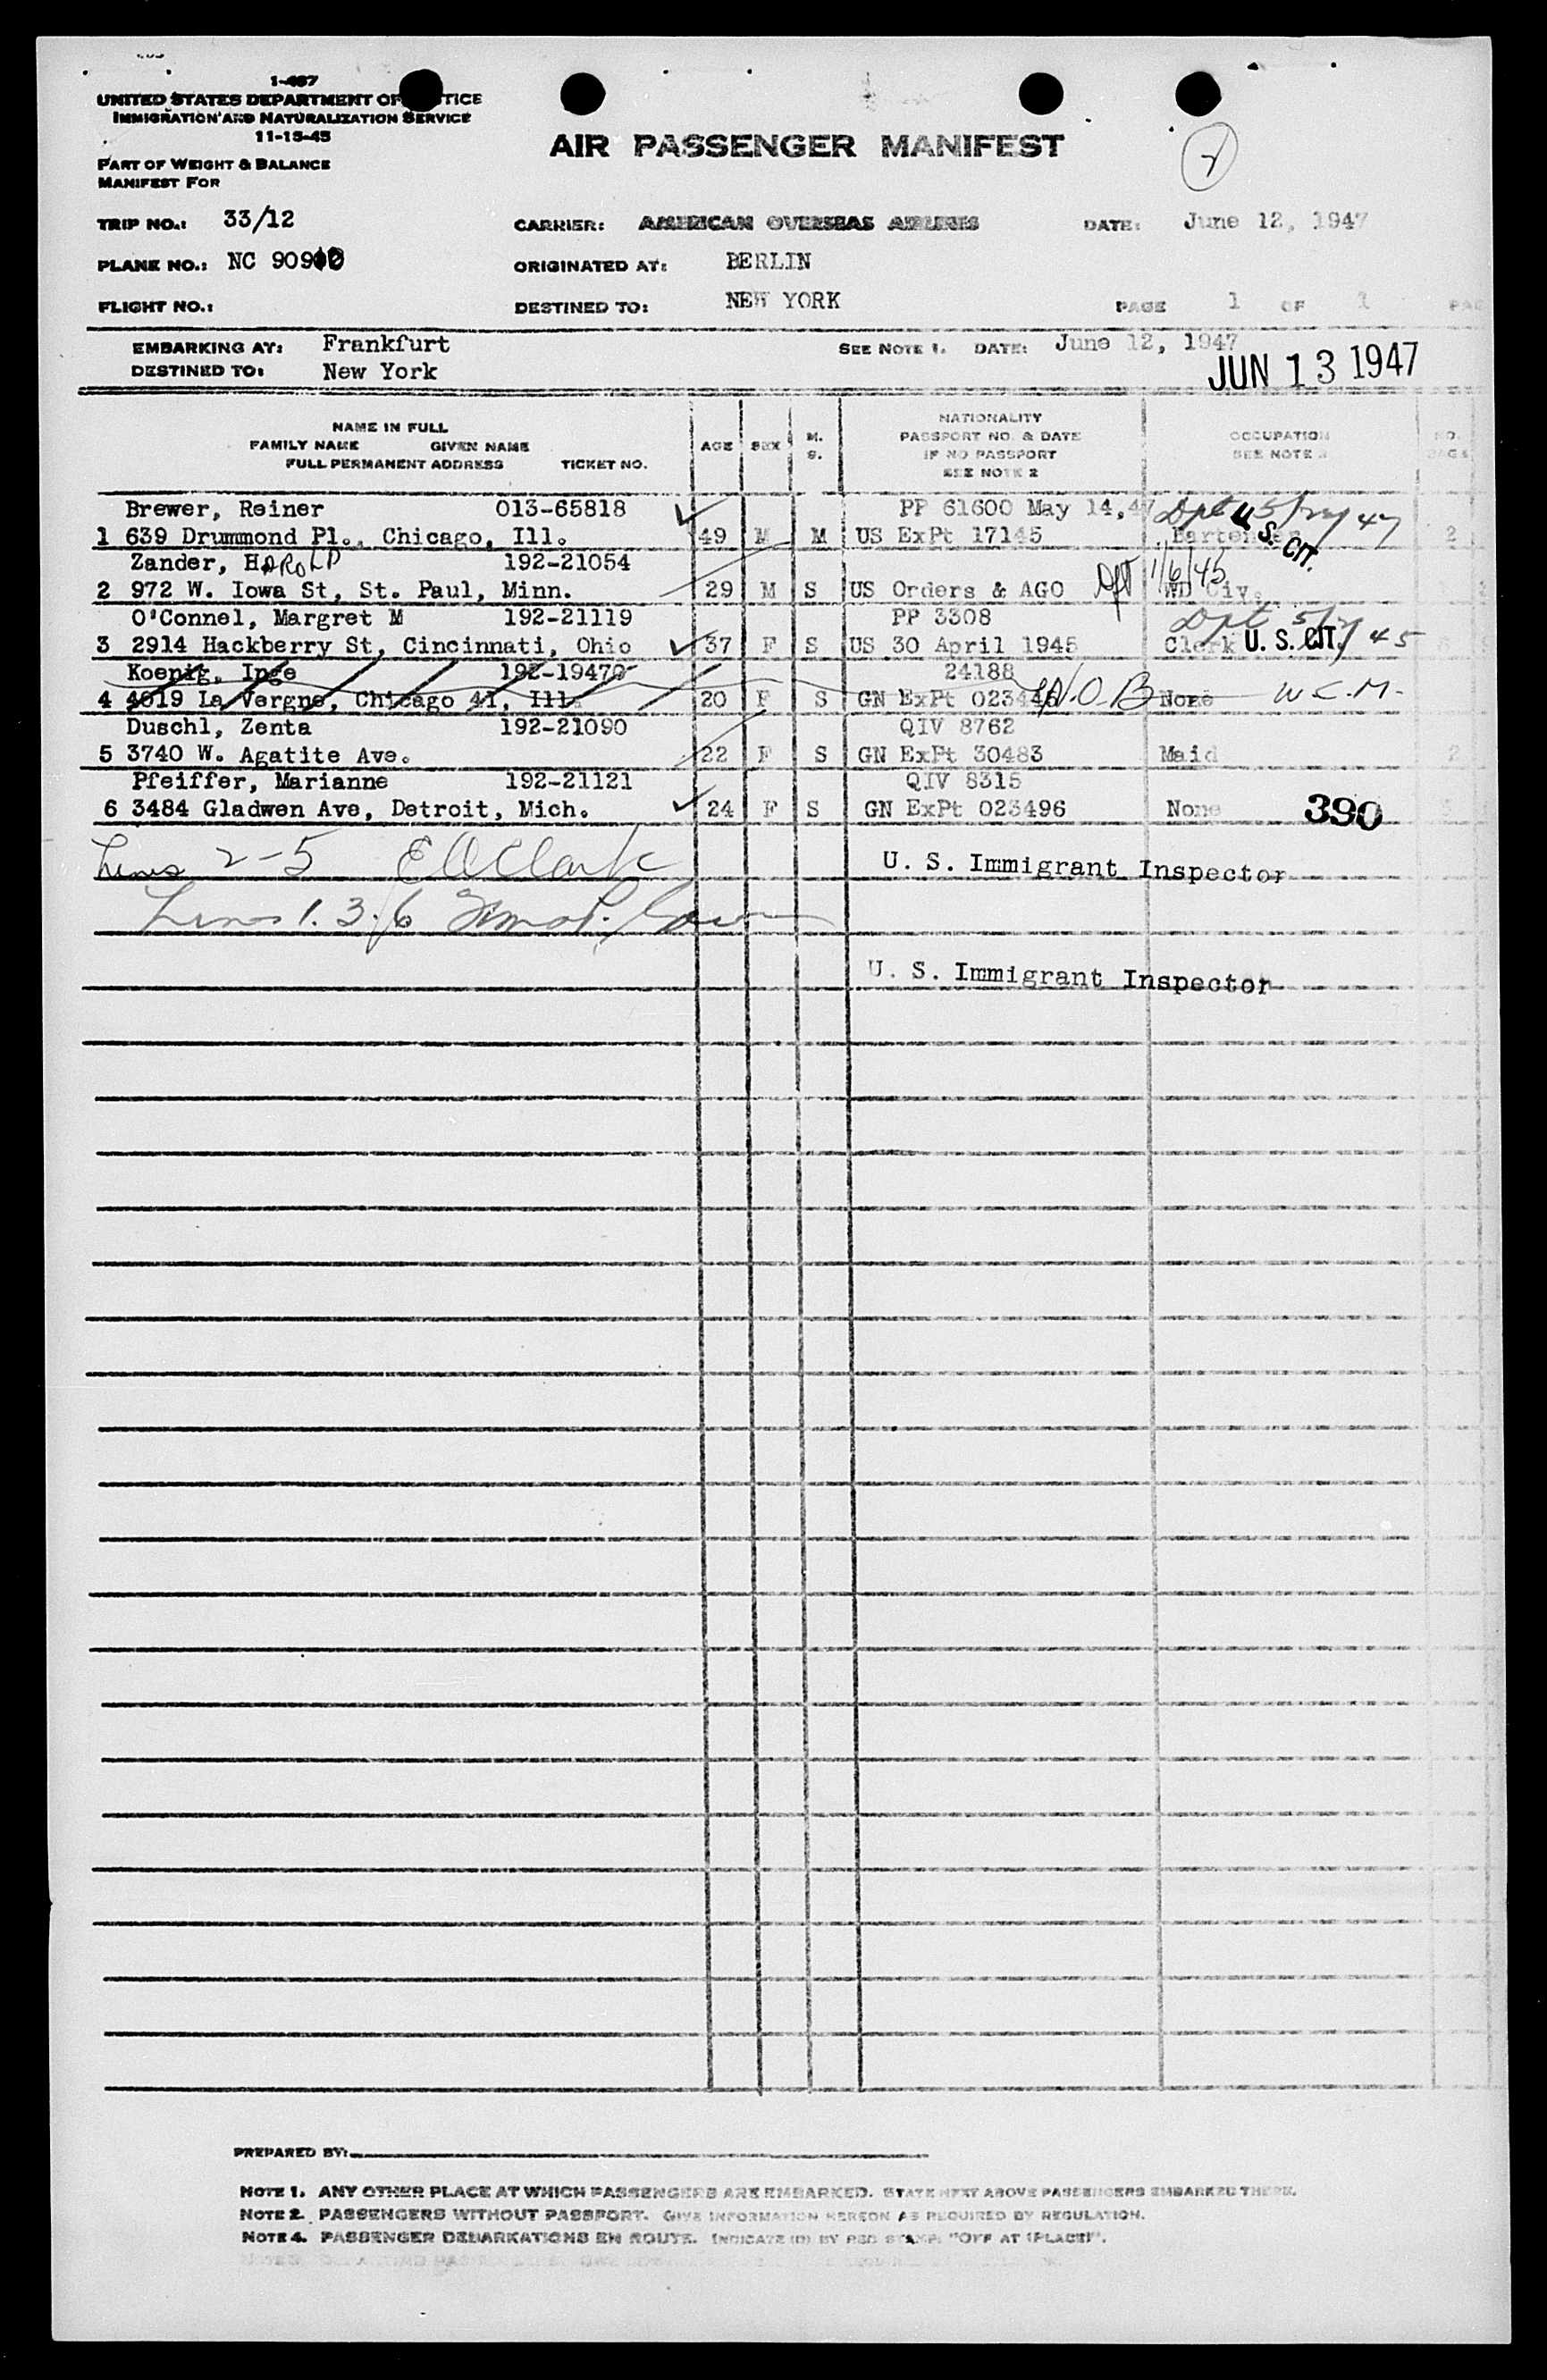 1-467
UNITED STATES DEPARTMENT OF TICE
IMMIGRATION AND NATURALIZATION SERVICE
11-15-45
PART OF WEIGHT & BALANCE
MANIFEST FOR
AIR PASSENGER MANIFEST
2
TRIP NO.: 33/12 CARRIER: AMERICAN OVERSEAS AIRLINES DATE: June 12, 1947
PLANE NO.: NC 909 ORIGINATED AT: BERLIN
FLIGHT NO.: DESTINED TO: NEW YORK PAGE 1 OF 1
EMBARKING AT: Frankfurt SEE NOTE 1. DATE: June 12, 1947
DESTINED TO: New York JUN 13 1947
NAME IN FULL
FAMILY NAME GIVEN NAME
FULL PERMANENT ADDRESS TICKET NO.
AGE SEX M. S.
NATIONALITY
PASSPORT NO. & DATE
IF NO PASSPORT
SEE NOTE 2
OCCUPATION
SEE NOTE
Brewer, Reiner 013-65818 PP 61600 May 14,47 Dpt 5/ 47
1 639 Drummond Pl., Chicago, Ill. 49 M M US ExPt 17145 Bartender U.S. CIT. 2
Zander, HAROLD 192-21054 1/6/45
2 972 W. Iowa St, St. Paul, Minn. 29 M S US Orders & AGO Dpt WD Civ.
O'Connel, Margret M 192-21119 PP 3308 Dpt 5/ 45
3 2914 Hackberry St, Cincinnati, Ohio 37 F S US 30 April 1945 Clerk U. S. CIT.
Koenig, Inge 192-19470 24188
4 4819 La Vergne, Chicago 41, Ill. 20 F S GN ExPt 023446 N.O.B None W.C.M.
Duschl, Zenta 192-21090 QIV 8762
5 3740 W. Agatite Ave. 22 F S GN ExPt 30483 Maid 2
Pfeiffer, Marianne 192-21121 QIV 8315
6 3484 Gladwen Ave, Detroit, Mich. 24 F S GN ExPt 023496 None 390
Lines 2-5 E O Clark U. S. Immigrant Inspector
Lines 1. 3. 6
U. S. Immigrant Inspector
PREPARED BY:
NOTE 1. ANY OTHER PLACE AT WHICH PASSENGERS ARE EMBARKED. STATE NEXT ABOVE PASSENGERS EMBARKED THERE.
NOTE 2. PASSENGERS WITHOUT PASSPORT. GIVE INFORMATION HEREON AS REQUIRED BY REGULATION.
NOTE 4. PASSENGER DEBARKATIONS EN ROUTE. INDICATE BY RED STAMP "OFF AT (PLACE)".